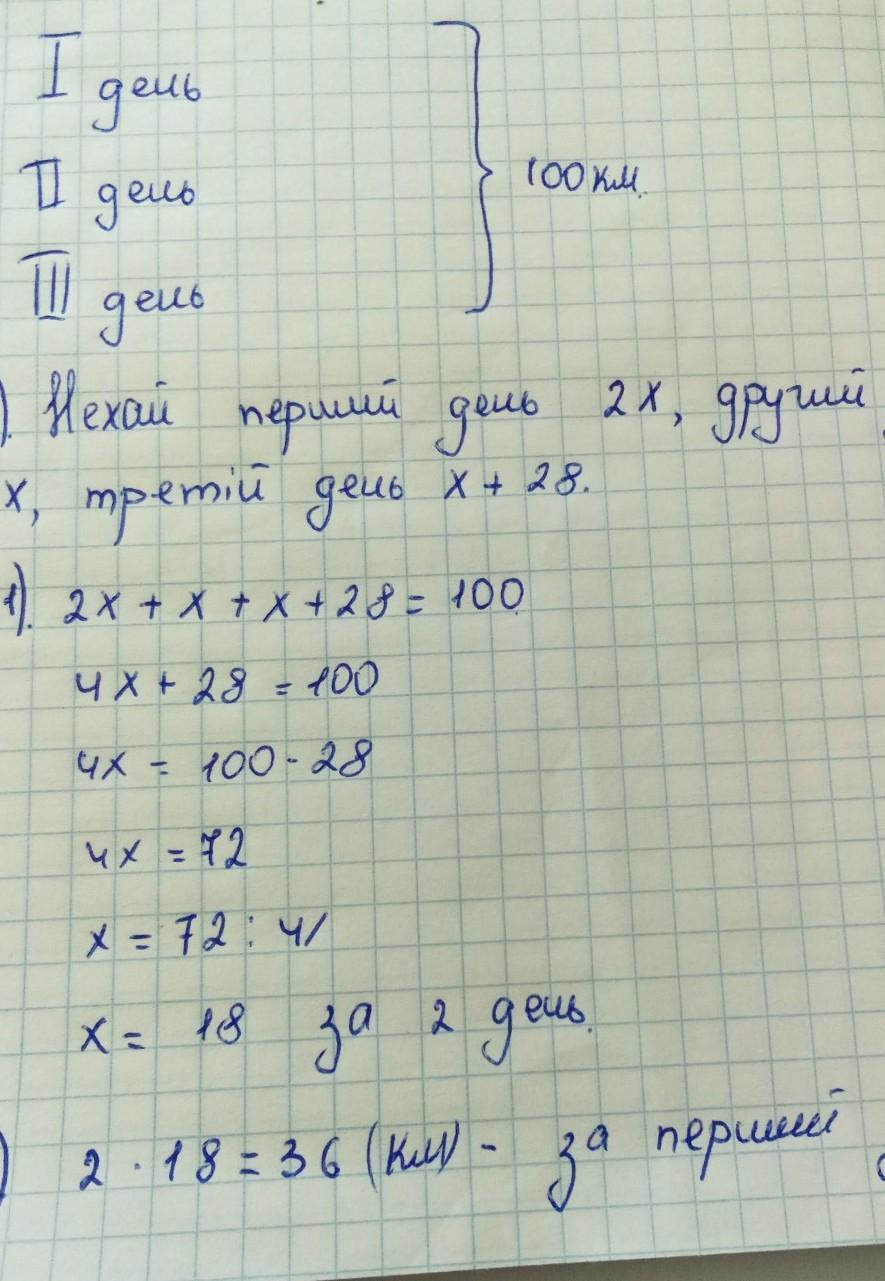 I день
II день
100 км.
III день
). Нехай перший день 2x, другий
x, третій день x + 28.
1). 2x + x + x + 28 = 100
4x + 28 = 100
4x = 100 - 28
4x = 72
x = 72 : 4
x = 18 за 2 день.
) 2 · 18 = 36 (км) - за перший